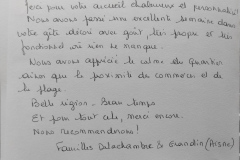 pour votre accueil chaleureux et personnalisé!
Nous avons passé une excellente semaine dans
votre gîte décoré avec goût, très propre et très
fonctionnel où rien ne manque.
Nous avons apprécié le calme du quartier
ainsi que la proximité du commerce et de
la plage.
Belle région - Beau temps
Et pour tout cela, merci encore.
Nous recommandons!
Familles Delachambre & Grandin (Aisne)